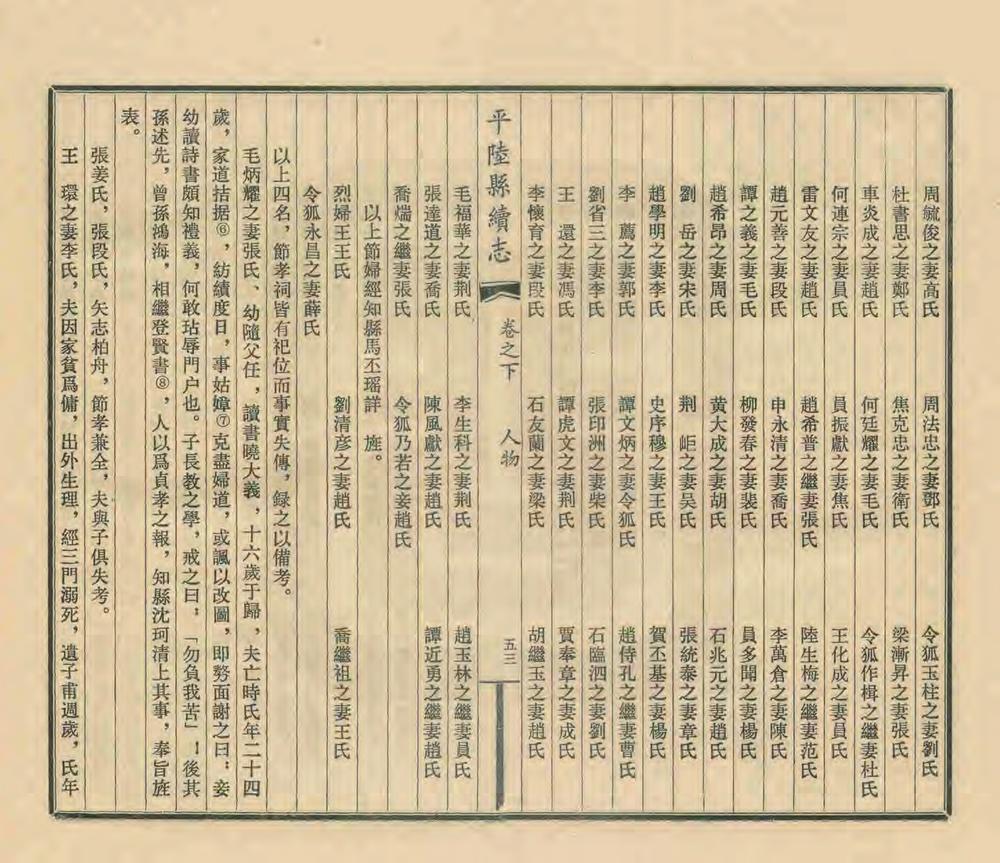 周毓俊之妻高氏　周法忠之妻鄧氏　令狐玉柱之妻劉氏
杜書思之妻鄭氏　焦克忠之妻衛氏　梁漸昇之妻張氏
車炎成之妻趙氏　何廷耀之妻毛氏　令狐作楫之繼妻杜氏
何連宗之妻員氏　員振獻之妻焦氏　王化成之妻員氏
雷文友之妻趙氏　趙希普之繼妻張氏　陸生梅之繼妻范氏
趙元善之妻段氏　申永清之妻喬氏　李萬倉之妻陳氏
譚之義之妻毛氏　柳發春之妻裴氏　員多聞之妻楊氏
趙希昂之妻周氏　黄大成之妻胡氏　石兆元之妻趙氏
劉　岳之妻宋氏　荆　岠之妻吴氏　張統泰之妻章氏
趙學明之妻李氏　史序穆之妻王氏　賀丕基之妻楊氏
李　薦之妻郭氏　譚文炳之妻令狐氏　趙侍孔之繼妻曹氏
劉省三之妻李氏　張印洲之妻柴氏　石臨泗之妻劉氏
王　還之妻馮氏　譚虎文之妻荆氏　賈奉章之妻成氏
李懷育之妻段氏　石友蘭之妻梁氏　胡繼玉之妻趙氏
平陸縣續志　卷之下　人物　五三
毛福華之妻荆氏　李生科之妻荆氏　趙玉林之繼妻員氏
張達道之妻喬氏　陳風獻之妻趙氏　譚近勇之繼妻趙氏
喬煓之繼妻張氏　令狐乃若之妾趙氏
以上節婦經知縣馬丕瑶詳　旌。
烈婦王王氏　劉清彦之妻趙氏　喬繼祖之妻王氏
令狐永昌之妻薛氏
以上四名，節孝祠皆有祀位而事實失傳，録之以備考。
毛炳耀之妻張氏、幼隨父任，讀書曉大義，十六歲于歸，夫亡時氏年二十四
歲，家道拮据⑥，紡績度日，事姑嫜⑦克盡婦道，或諷以改圖，即剺面謝之曰：妾
幼讀詩書頗知禮義，何敢玷辱門户也。子長教之學，戒之曰，「勿負我苦」！後其
孫述先，曾孫鴻海，相繼登賢書⑧，人以爲貞孝之報，知縣沈珂清上其事，奉旨旌
表。
張姜氏，張段氏，矢志柏舟，節孝兼全，夫與子俱失考。
王　環之妻李氏，夫因家貧爲傭，出外生理，經三門溺死，遺子甫週歲，氏年